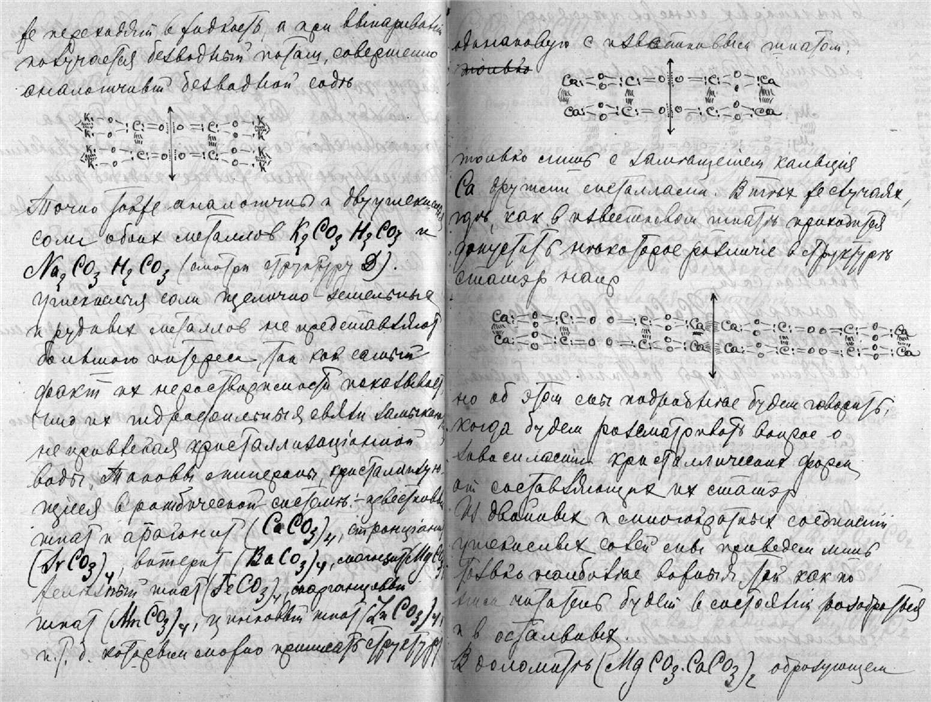 же переходят в жидкость, а при выпаривании
получается безводный поташ, совершенно
аналогичный безводной соде
K C=O O=C K
K C=O O=C K
Точно также аналогичны и двууглекислыя
соли обоих металлов K₂CO₃ H₂CO₃ и
Na₂CO₃ H₂CO₃ (смотри структуру D).
Углекислыя соли щелочно земельных
и рудовых металлов не представляют
большого интереса, так как самый
факт их нерастворимости показывает
что их гидрофильныя связи замыкаются
не привлекая кристаллизационной
воды. Таковы минералы, кристаллизую
щиеся в ромбической системе: известковый
шпат и арагонит (CaCO₃)₄, стронцианит
(SrCO₃)₄, витерит (BaCO₃)₄, магнезит MgCO₃
железный шпат (FeCO₃)₄, марганцовый
шпат (MnCO₃)₄, цинковый шпат (ZnCO₃)₄,
и.т.д. которым можно приписать структуру,
одинаковую с известковым шпатом,
только
Ca C O O C Ca
Ca C O O C Ca
только лишь с замещением кальция
Ca другими металлами. В тех же случаях,
где, как в известковом шпате приходится
допустить некоторое различие в структуре
стаэр напр
Ca C O O C Ca Ca C O O C Ca
Ca C O O C Ca Ca C O O C Ca
но об этом мы подробнее будем говорить,
когда будем разсматривать вопрос о
зависимости кристаллических форм
от составляющих их стаэр
Из двойных и многократных соединений
углекислых солей мы приведем лишь
только наиболее важныя, так как по
читатель будет в состоянии разобраться
и в остальных
В доломите (MgCO₃.CaCO₃)₂ образующем